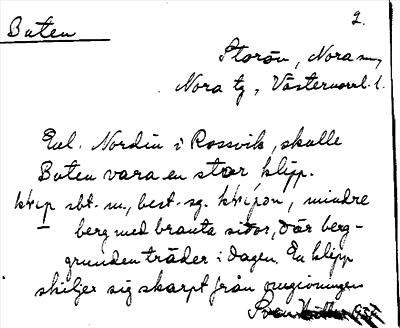 Buten
2.
Storön, Nora sn,
Nora tg, Västernorrl. l.
Enl. Nordin i Rossvik, skulle
Buten vara en stor klipp.
klip sbt. m., best. sg. klipon, mindre
berg med branta sidor, där berg-
grunden träder i dagen. En klipp
skiljer sig skarpt från omgivningen
Sven 1934